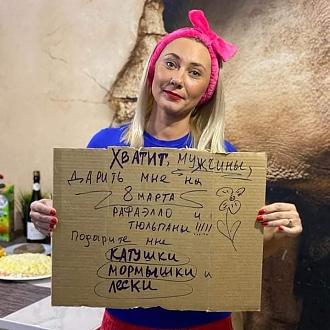 ХВАТИТ, МУЖЧИНЫ,
ДАРИТЬ МНЕ НА
8 МАРТА
РАФАЭЛЛО И
ТЮЛЬПАНЫ !!!!!
Подарите мне
КАТУШКИ
МОРМЫШКИ и
ЛЕСКИ